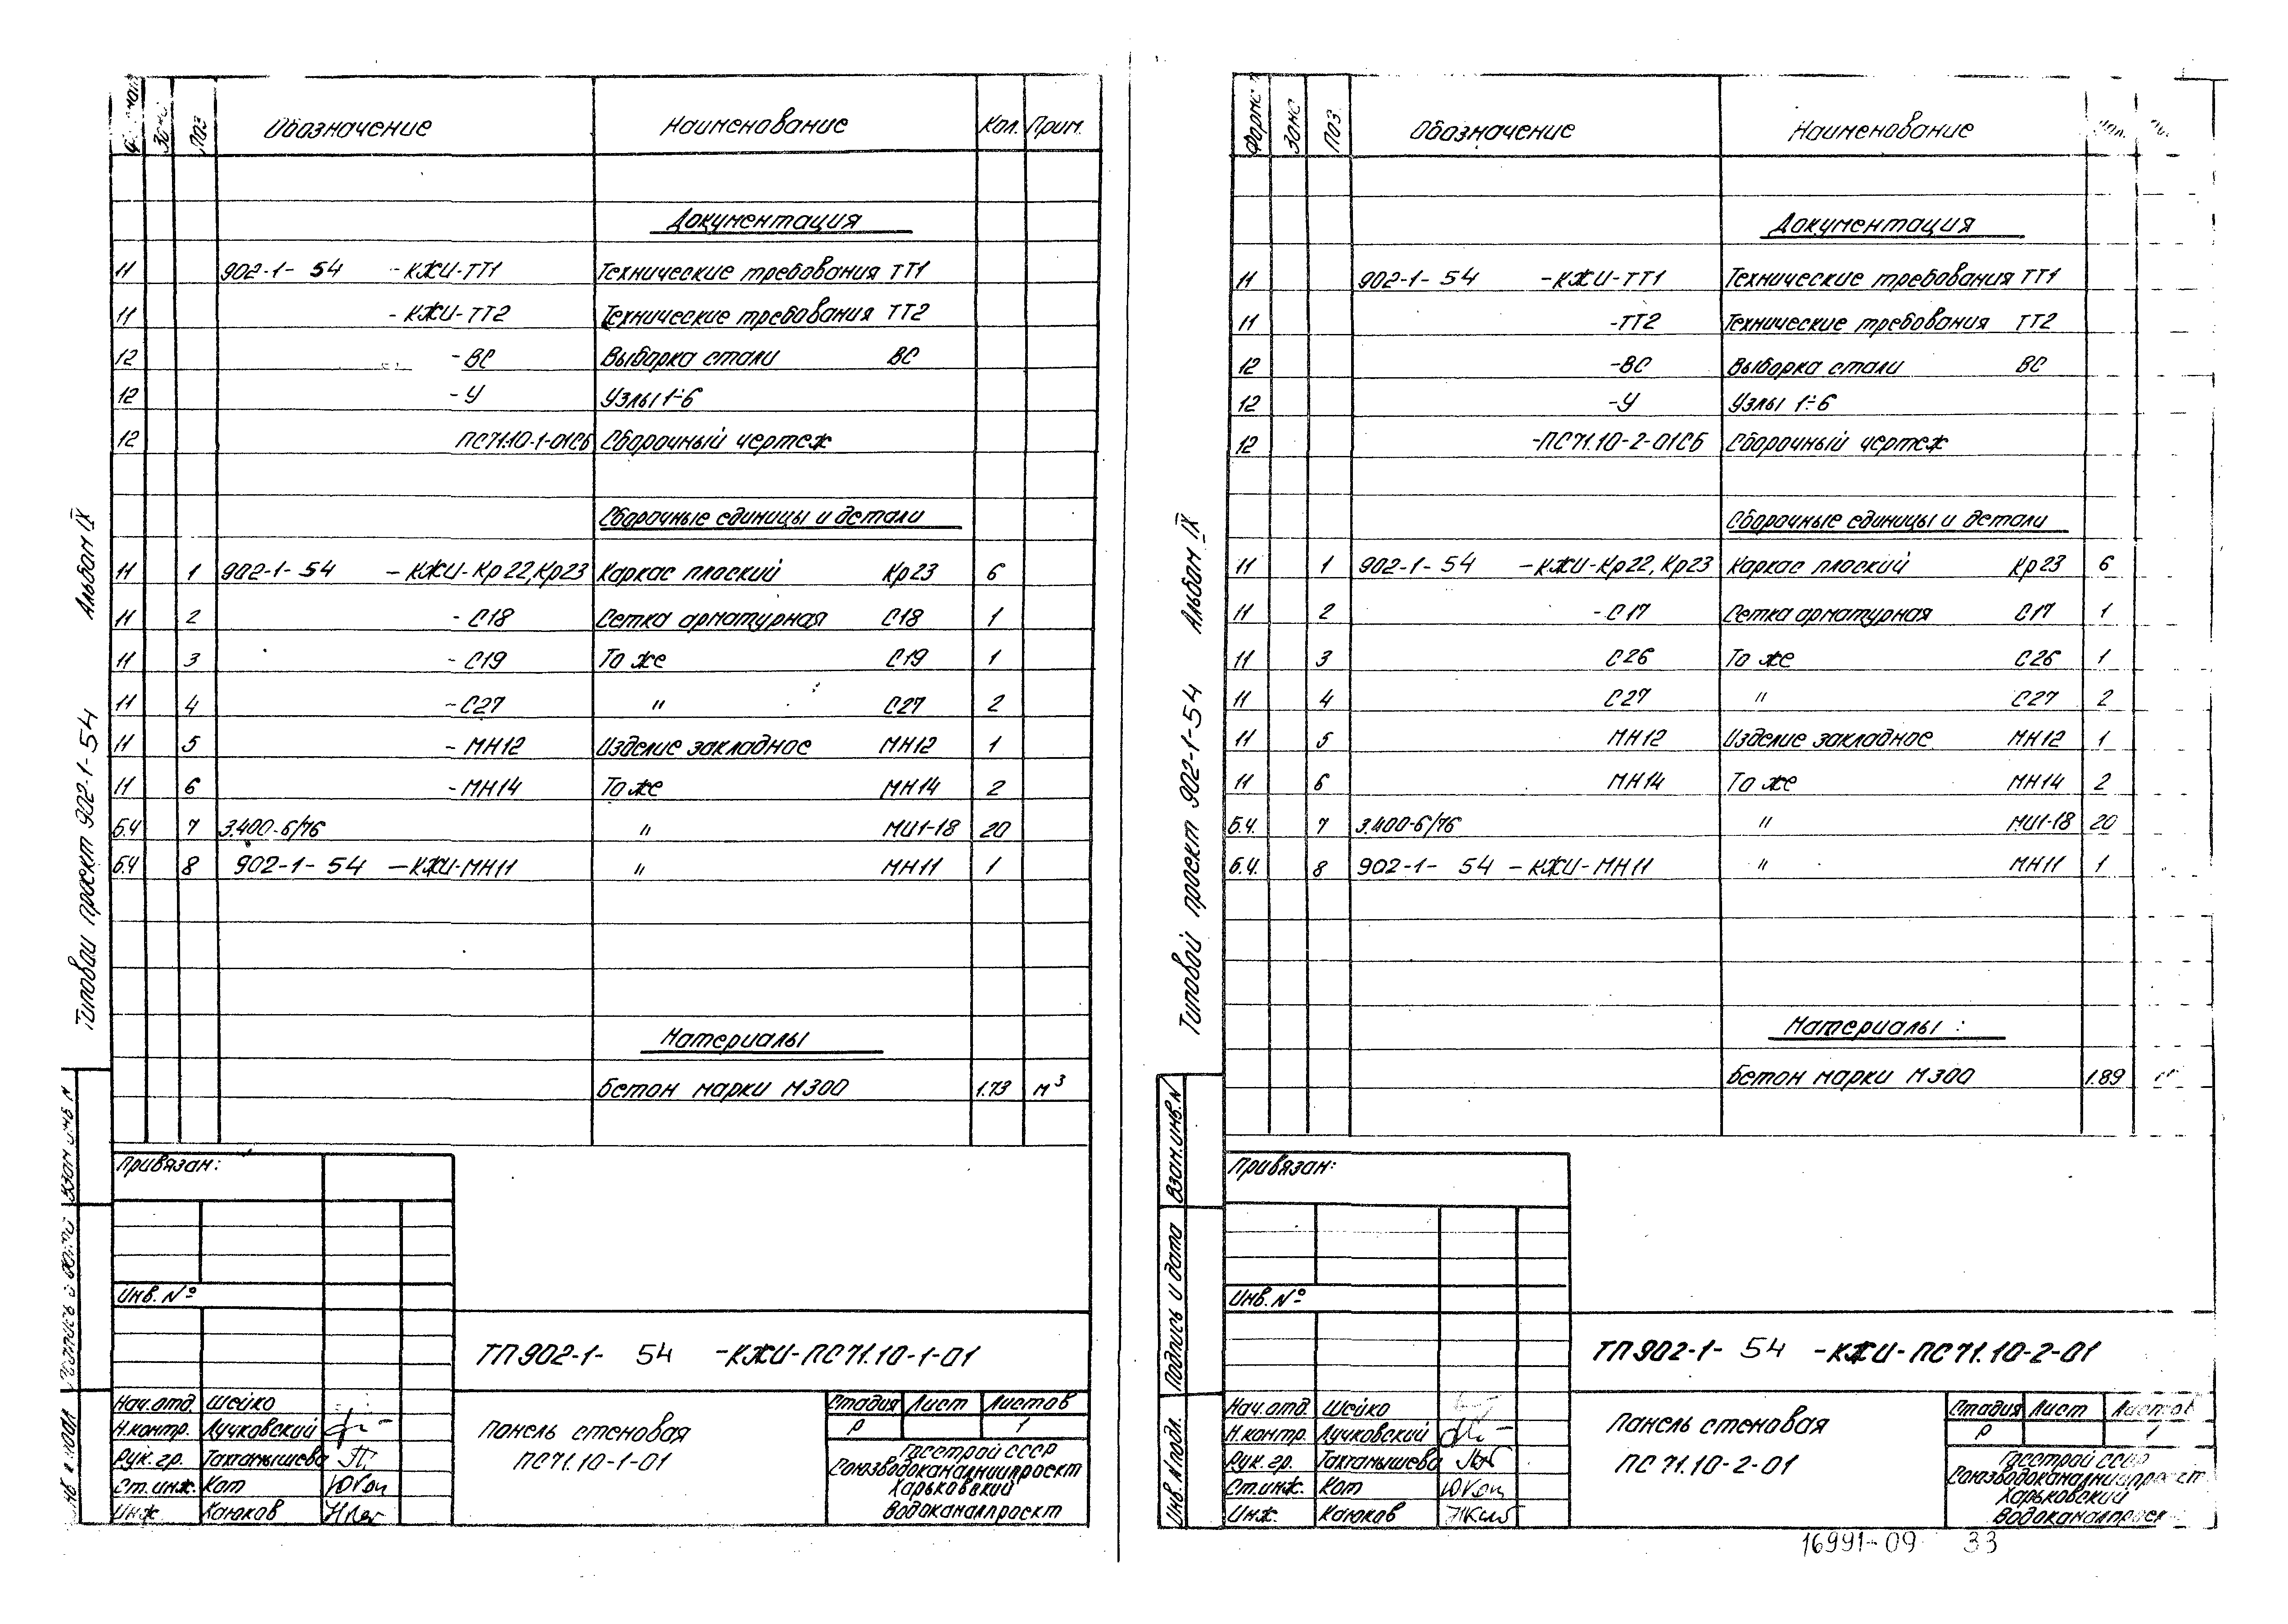 Формат Зона Поз Обозначение Наименование Кол. Прим.
Документация
11 902-1- 54 -КЖИ-ТТ1 Технические требования ТТ1
11 -КЖИ-ТТ2 Технические требования ТТ2
12 -ВС Выборка стали ВС
12 -У Узлы 1÷6
12 ПС71.10-1-01СБ Сборочный чертеж
Сборочные единицы и детали
11 1 902-1- 54 -КЖИ-Кр22,Кр23 Каркас плоский Кр23 6
11 2 -С18 Сетка арматурная С18 1
11 3 -С19 То же С19 1
11 4 -С27 " С27 2
11 5 -МН12 Изделие закладное МН12 1
11 6 -МН14 То же МН14 2
Б.Ч 7 3.400-6/76 " МИ1-18 20
Б.Ч 8 902-1- 54 -КЖИ-МН11 " МН11 1
Материалы
Бетон марки М300 1.73 м³
Типовой проект 902-1-54 Альбом IX
Привязан:
Инв. №
ТП902-1- 54 -КЖИ-ПС71.10-1-01
Нач.отд. Шейко
Н.контр. Лучковский
Рук.гр. Тахтамышева
Ст.инж. Кот
Инж. Каюков
Панель стеновая
ПС71.10-1-01
Стадия Лист Листов
Р 1
Госстрой СССР
Союзводоканалниипроект
Харьковский
Водоканалпроект
Формат Зона Поз. Обозначение Наименование Кол.
Документация
11 902-1- 54 -КЖИ-ТТ1 Технические требования ТТ1
11 -ТТ2 Технические требования ТТ2
12 -ВС Выборка стали ВС
12 -У Узлы 1÷6
12 -ПС71.10-2-01СБ Сборочный чертеж
Сборочные единицы и детали
11 1 902-1- 54 -КЖИ-Кр22,Кр23 Каркас плоский Кр23 6
11 2 -С17 Сетка арматурная С17 1
11 3 С26 То же С26 1
11 4 С27 " С27 2
11 5 МН12 Изделие закладное МН12 1
11 6 МН14 То же МН14 2
Б.Ч. 7 3.400-6/76 " МИ1-18 20
Б.Ч. 8 902-1- 54 -КЖИ-МН11 " МН11 1
Материалы :
Бетон марки М300 1.89
Типовой проект 902-1-54 Альбом IX
Взам.инв.N
Подпись и дата
Инв.N подл.
Привязан:
Инв. №
ТП902-1- 54 -КЖИ-ПС71.10-2-01
Нач.отд. Шейко
Н.контр. Лучковский
Рук.гр. Тахтамышева
Ст.инж. Кот
Инж. Каюков
Панель стеновая
ПС71.10-2-01
Стадия Лист Листов
Р 1
Госстрой СССР
Союзводоканалниипроект
Харьковский
Водоканалпроект
16991-09 33